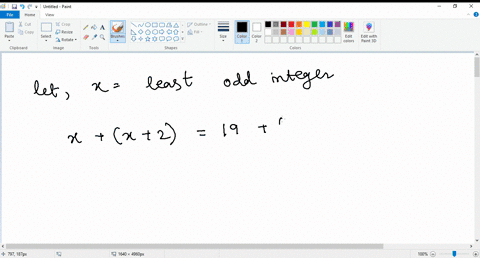 Untitled - Paint
File Home View
Paste Cut Copy Select Crop Resize Rotate Brushes Outline Fill Size Color 1 Color 2 Edit colors Edit with Paint 3D
Clipboard Image Tools Shapes Colors
let, x = least odd integer
x + (x+2) = 19 +
797, 187px 100%